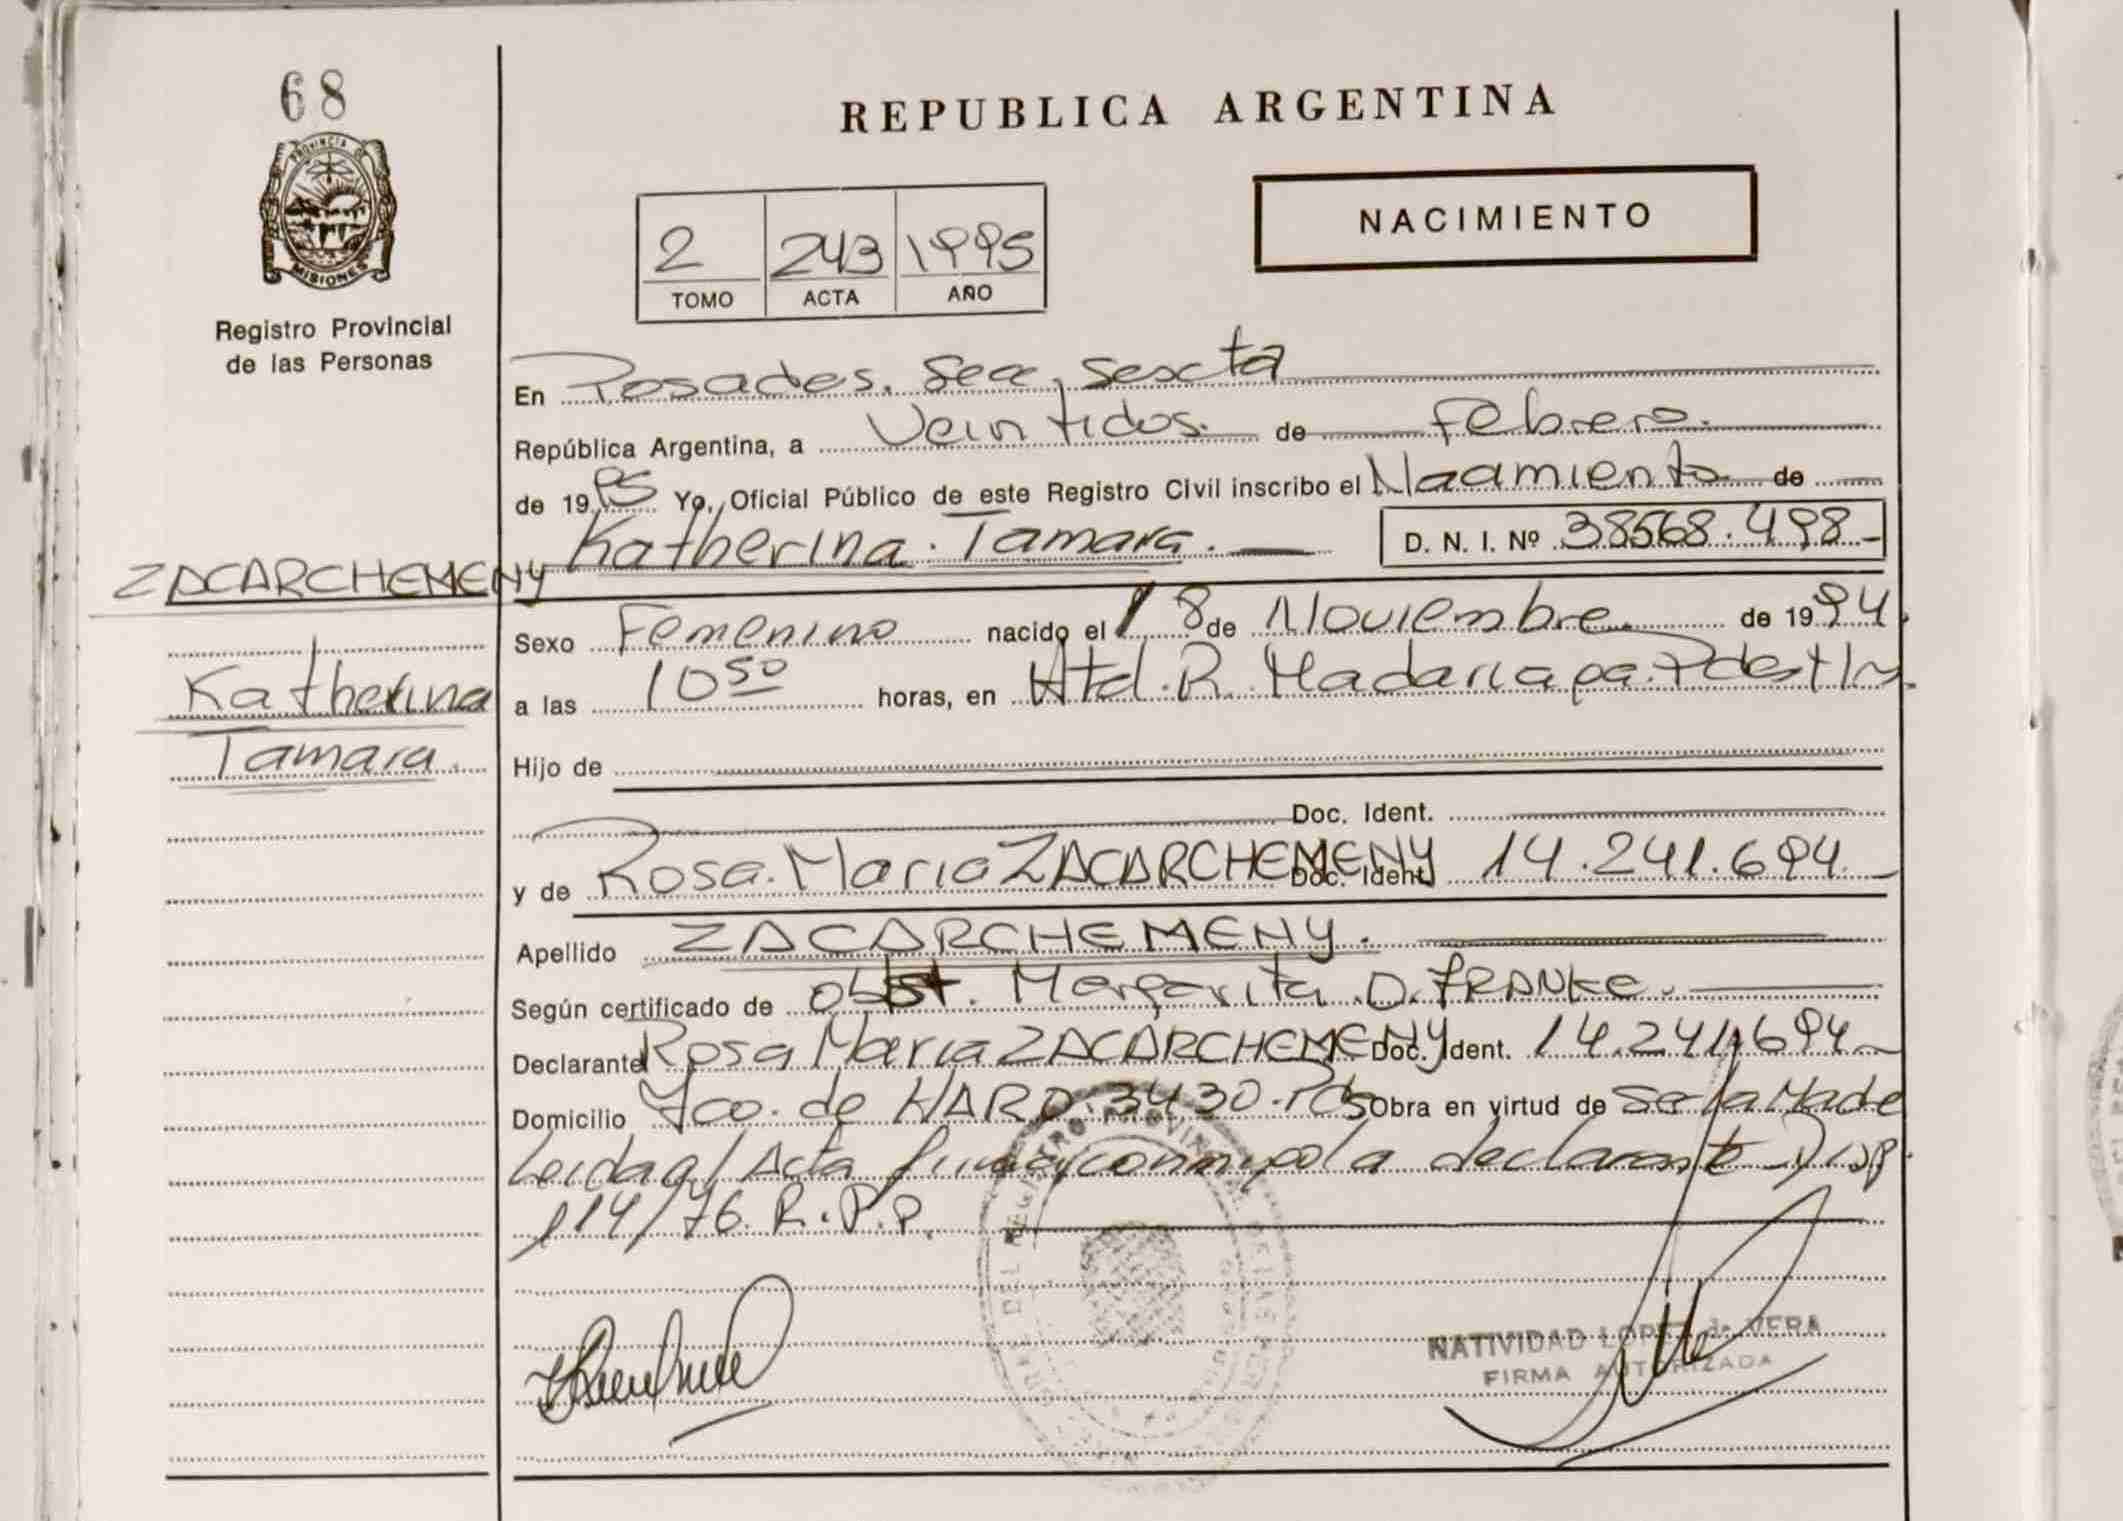 68
PROVINCIA DE
MISIONES
Registro Provincial
de las Personas
ZACARCHEMENY
Katherina
Tamara.
REPUBLICA ARGENTINA
NACIMIENTO
2 243 1995
TOMO ACTA AÑO
En Posadas. Secc. Sexta
República Argentina, a Veintidos. de Febrero.
de 1995 Yo, Oficial Público de este Registro Civil inscribo el Nacimiento de
Katherina. Tamara. D. N. I. Nº 38568.498
Sexo Femenino nacido el 18 de Noviembre. de 1994.
a las 10 50 horas, en R. Madariaga.
Hijo de
Doc. Ident.
y de Rosa. Maria ZACARCHEMENY Doc. Ident. 14.241.694.
Apellido ZACARCHEMENY.
Según certificado de obst. Margarita D. FRANKE.
Declarante Rosa Maria ZACARCHEMENY Doc. Ident. 14.241.694
Domicilio Fco. de HARO. 3430. Pdas Obra en virtud de ser la Madre
Leida el Acta firma conmigo la declarante Disp.
114/76. R.P.P.
NATIVIDAD LOPEZ de VERA
FIRMA AUTORIZADA